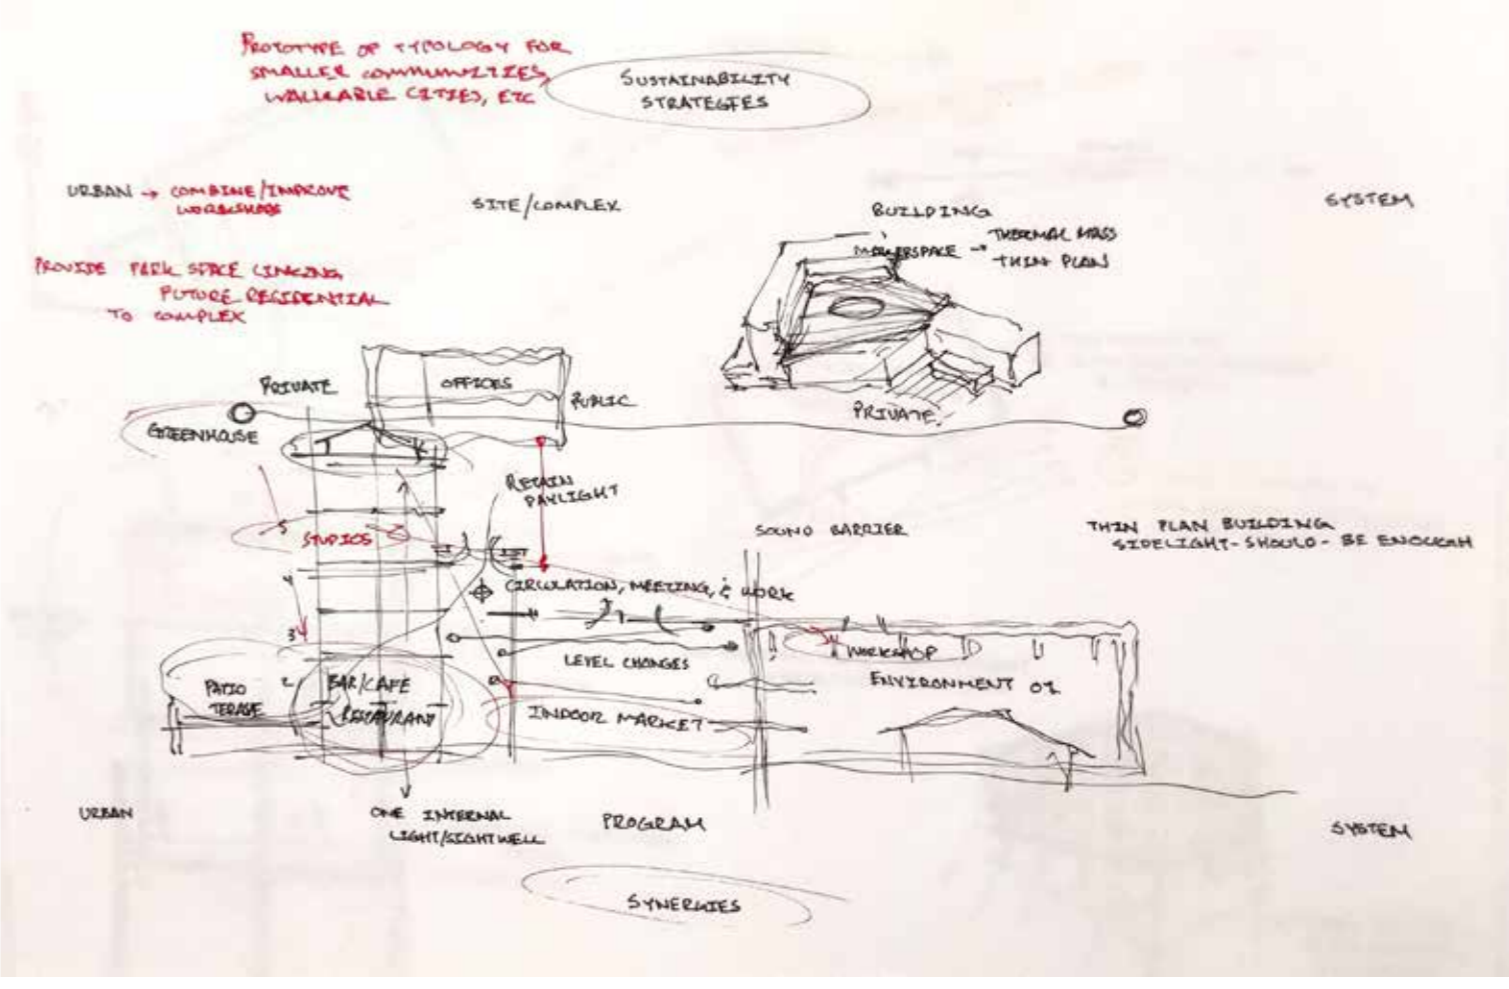 PROTOTYPE OF TYPOLOGY FOR
SMALLER COMMUNITIES,
WALKABLE CITIES, ETC
SUSTAINABILITY
STRATEGIES
URBAN → COMBINE/IMPROVE
WORKSHOPS
SITE/COMPLEX
BUILDING
SYSTEM
MAKERSPACE → THERMAL MASS
THIN PLAN
PROVIDE PARK SPACE LINKING
FUTURE RESIDENTIAL
TO COMPLEX
PRIVATE
OFFICES
PUBLIC
PRIVATE
GREENHOUSE
RETAIN
DAYLIGHT
5
STUDIOS
SOUND BARRIER
THIN PLAN BUILDING
SIDELIGHT-SHOULD-BE ENOUGH
4
CIRCULATION, MEETING, & WORK
3
LEVEL CHANGES
WORKSHOP
ENVIRONMENT 01
PATIO
TERASE
2
BAR/CAFE
RESTAURANT
INDOOR MARKET
URBAN
ONE INTERNAL
LIGHT/SIGHTWELL
PROGRAM
SYSTEM
SYNERGIES